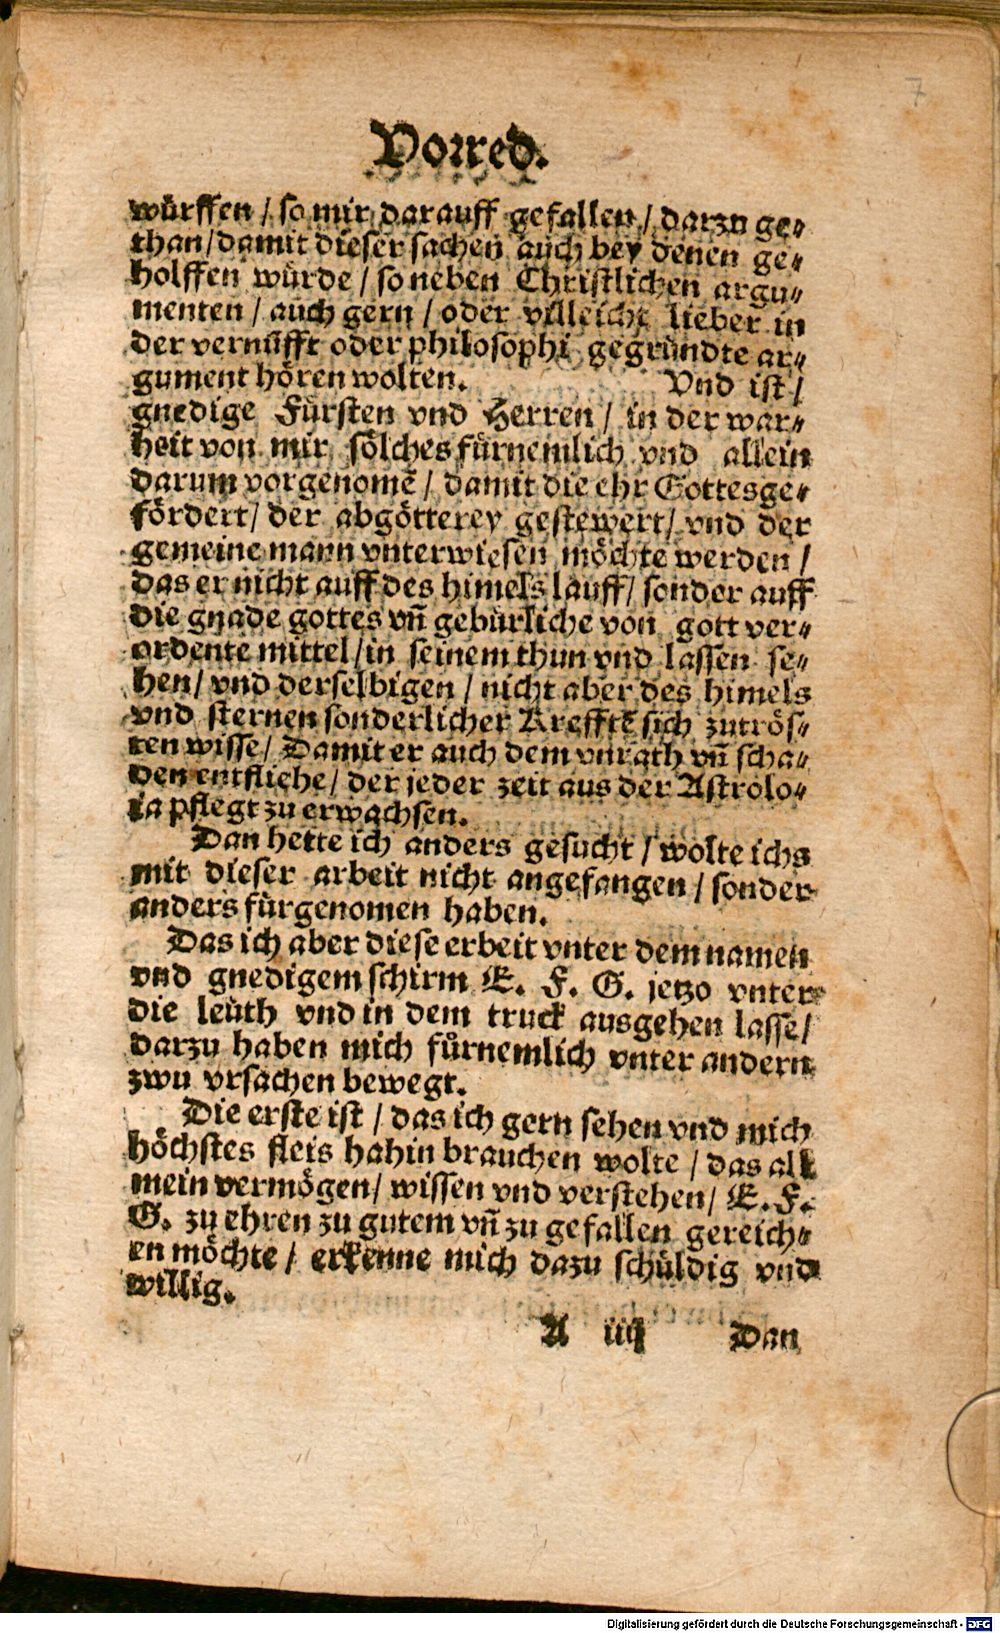 7
Vorred.
würffen / so mir darauff gefallen / darzu ge⸗
than / damit dieser sachen auch bey denen ge⸗
holffen würde / so neben Christlichen argu⸗
menten / auch gern / oder villeicht lieber in
der vernūfft oder philosophi gegründte ar⸗
gument hören wolten. Vnd ist /
gnedige Fürsten vnd Herren / in der war⸗
heit von mir sölches fürnemlich vnd allein
darum vorgenomē / damit die ehr Gottes ge⸗
fördert / der abgötterey gestewert / vnd der
gemeine mann vnterwiesen möchte werden /
das er nicht auff des himels lauff / sonder auff
die gnade gottes vn̄ gebürliche von gott ver⸗
ordente mittel / in seinem thun vnd lassen se⸗
hen / vnd derselbigen / nicht aber des himels
vnd sternen sonderlicher Krefftē sich zutrös⸗
ten wisse / Damit er auch dem vnrath vn̄ scha⸗
den entfliehe / der jeder zeit aus der Astrolo⸗
ia pflegt zu erwachsen.
Dan hette ich anders gesucht / wolte ichs
mit dieser arbeit nicht angefangen / sonder
anders fürgenomen haben.
Das ich aber diese erbeit vnter dem namen
vnd gnedigem schirm E. F. G. jetzo vnter
die leüth vnd in dem truck ausgehen lasse /
darzu haben mich fürnemlich vnter andern
zwu vrsachen bewegt.
Die erste ist / das ich gern sehen vnd mich
höchstes fleis hahin brauchen wolte / das all
mein vermögen / wissen vnd verstehen / E. F.
G. zu ehren zu gutem vn̄ zu gefallen gereich⸗
en möchte / erkenne mich dazu schüldig vnd
willig.
A iiij Dan
Digitalisierung gefördert durch die Deutsche Forschungsgemeinschaft - DFG